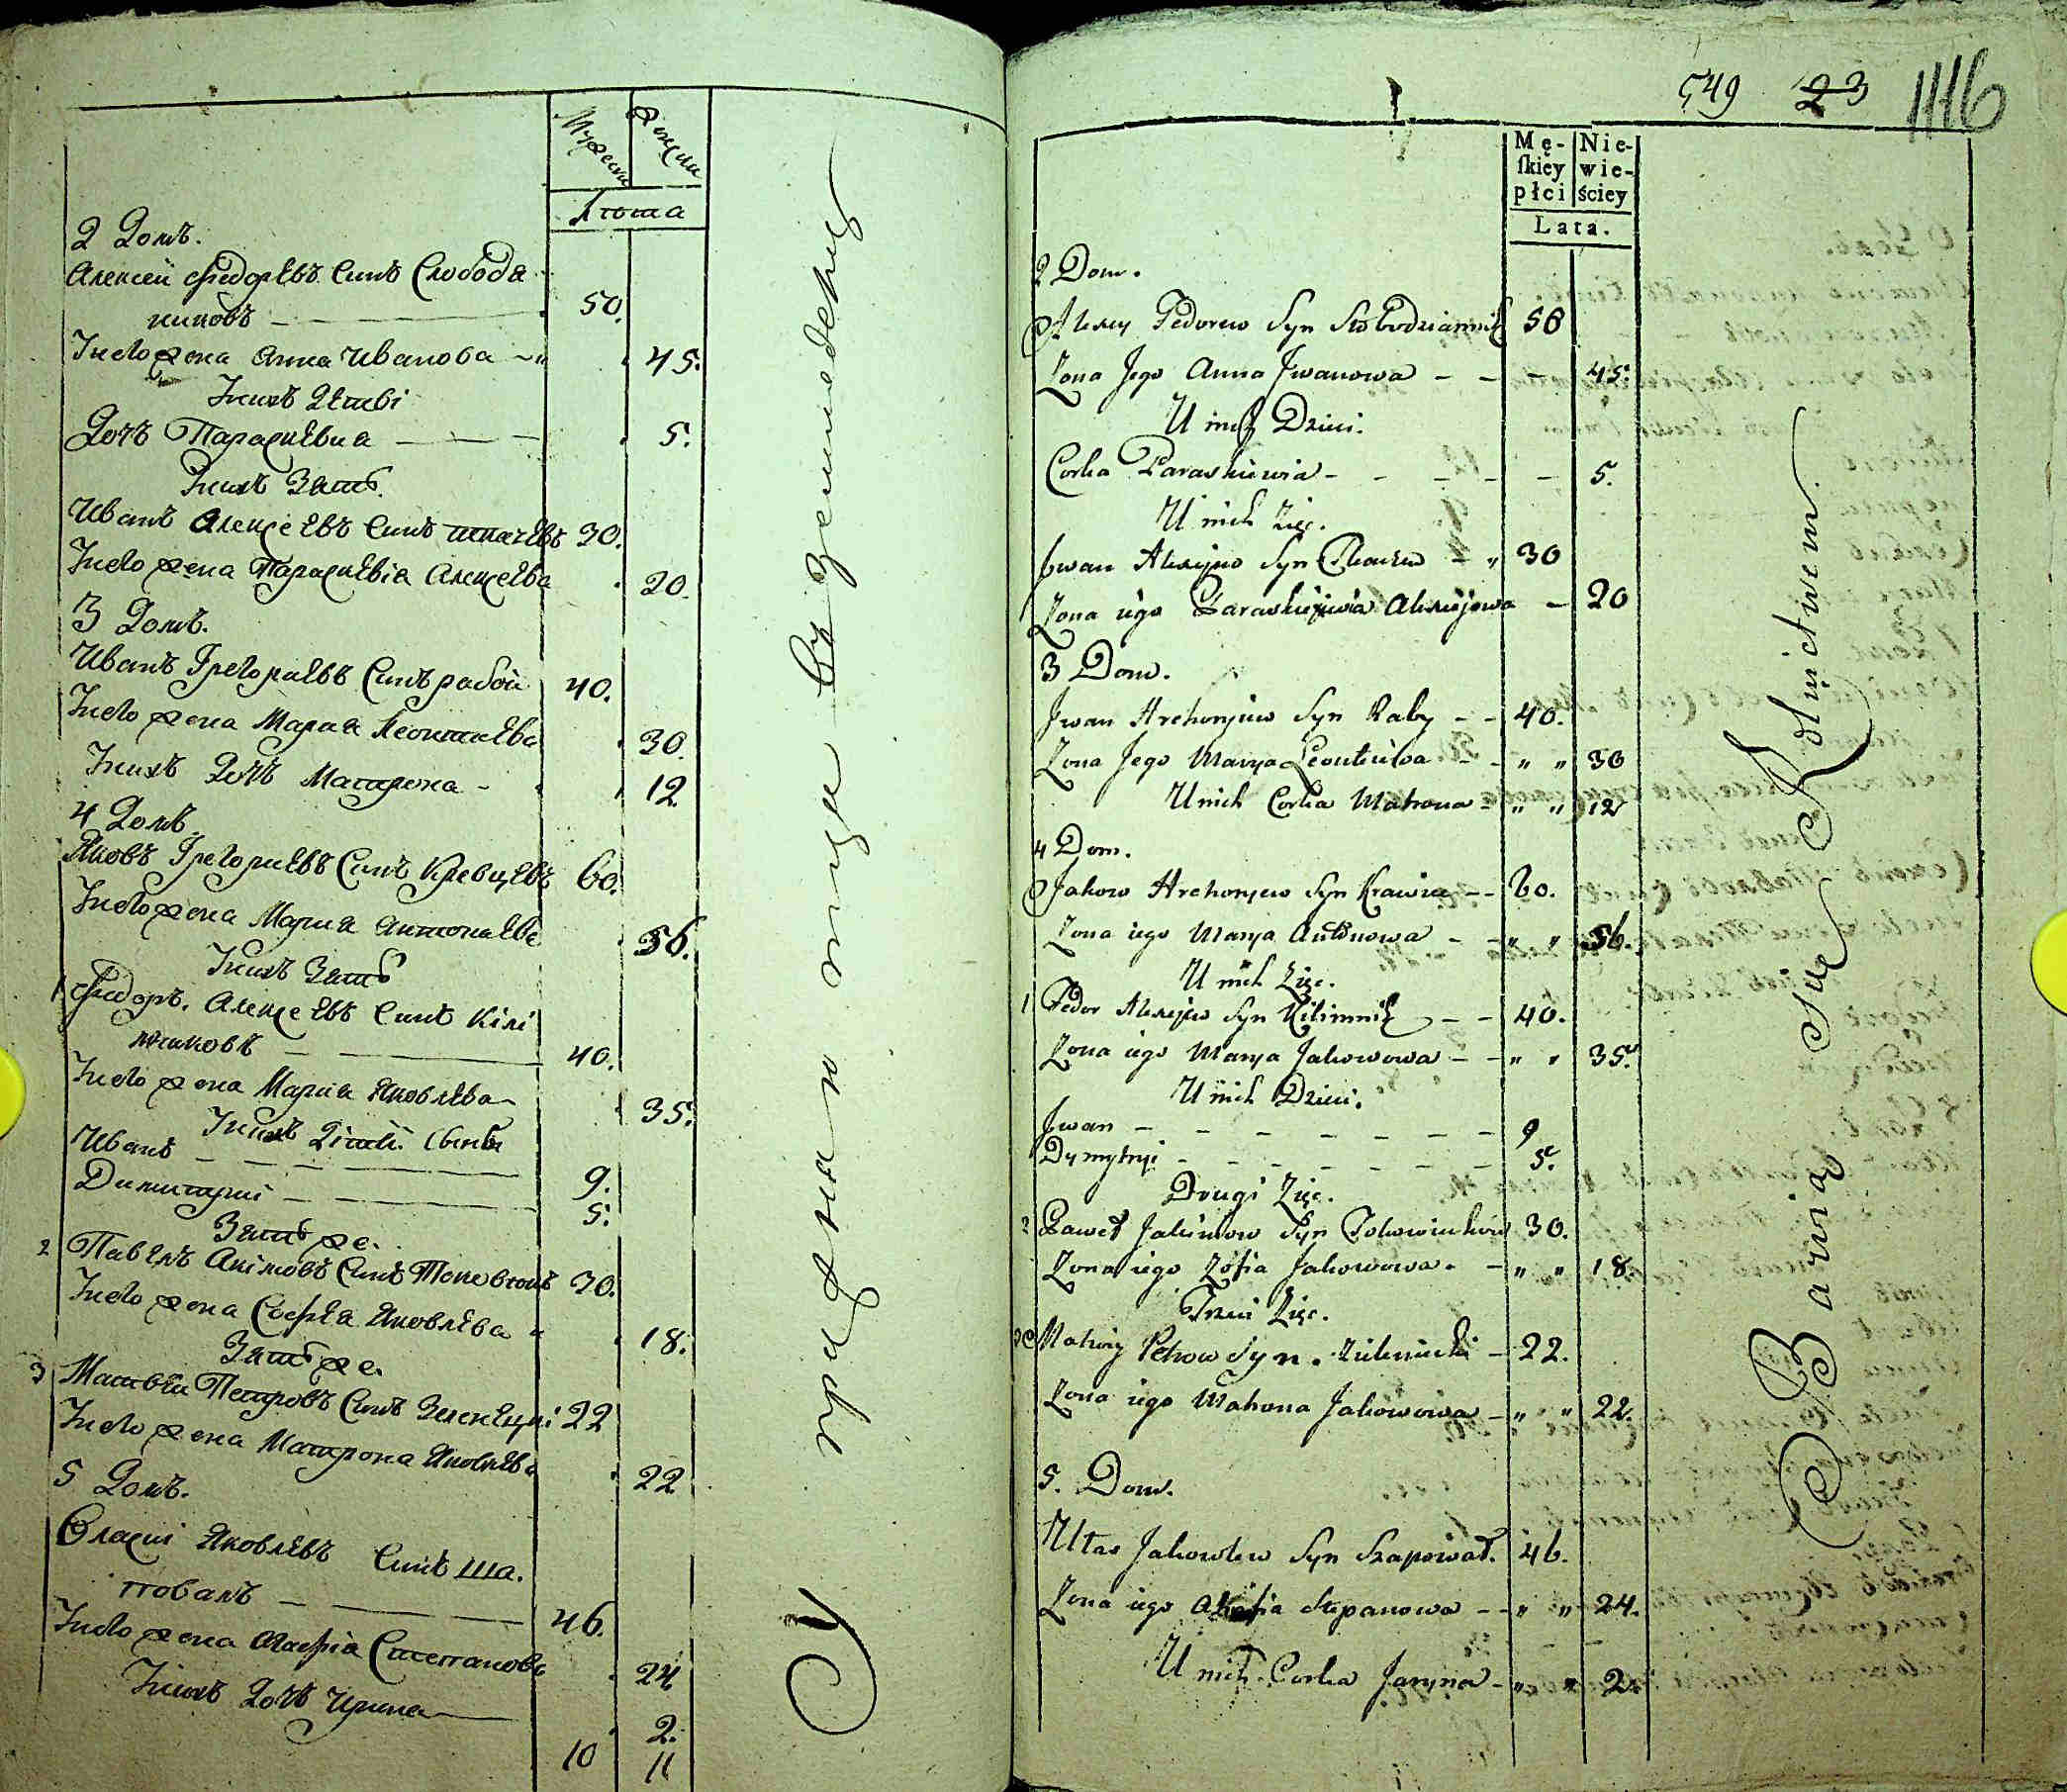 Мужеска
Женска
Лѣта
2 Домъ.
Алексей Федоръевъ Синъ Слободя
никовъ 50.
Унего жена Анна Иванова 45.
Унихъ Дѣтѣ
Дочъ Параскѣвиа 5.
Унихъ Зять.
Иванъ Алексеевъ Синъ ткачевъ 30.
Унего жена Параскѣвія Алексеева 20.
3 Домъ.
Иванъ Григориевъ Синъ рабой 40.
Унего жена Мария Леонтиева 30.
Унихъ Дочъ Матрона 12
4 Домъ.
Яковъ Григориевъ Синъ Кревцевъ 60.
Унего жена Мария Антониева 56.
Унихъ Зять
1 Федоръ Алексеевъ Синъ Кили
мниковъ 40.
Унего жена Мария Яковлева 35.
Унихъ Дѣти
Иванъ 9.
Димитрий 5.
Зять же.
2 Павелъ Акимовъ Синъ 30.
Унего жена Софья Яковлева 18.
Зять же.
3 Матвѣй Петровъ Синъ Зеленецки 22
Унего жена Матрона Яковлева 22
5 Домъ.
Власий Яковлевъ Синъ Ша.
повалъ 46.
Унего жена Агафія Степанова 24
Унихъ Дочъ Ирина 2.
10 11
Упражняются въ земледелии
549 23 1116
Mę-
ſkiey
płci
Nie-
wie-
ściey
Lata.
2 Dom.
Alexy Fedorew Syn Słobodzianik 50
Zona Jego Anna Jwanowa 45.
U nich Dzieci.
Corka Paraskiewia 5.
U nich Zięc.
Jwan Alexijew Syn Tkaczew 30
Zona iego Paraskijewia Alexijewa 20
3 Dom.
Jwan Hrehorijew Syn Raby 40.
Zona Jego Marya Leontiewa 30
U nich Corka Matrona 12
4 Dom.
Jakow Hrehorjew Syn Krawiec 60.
Zona iego Marya Antonowa 56.
U nich Zięc.
1 Fedor Alexijew Syn Kilimnik 40.
Zona iego Marya Jakowowa 35.
U nich Dzieci.
Jwan 9
Dymytryi 5.
Drugi Zięc.
2 Paweł Jakimow Syn 30.
Zona iego Zofia Jakowowa 18
Trzeci Zięc.
3 Matwiy Petrow Syn. Zieleniecki 22.
Zona iego Matrona Jakowowa 22.
5. Dom.
Ułas Jakowlew Syn Szapował. 46.
Zona iego Ahafia Stepanowa 24.
U nich Corka Jaryna 2.
Bawią się Rolnictwem.